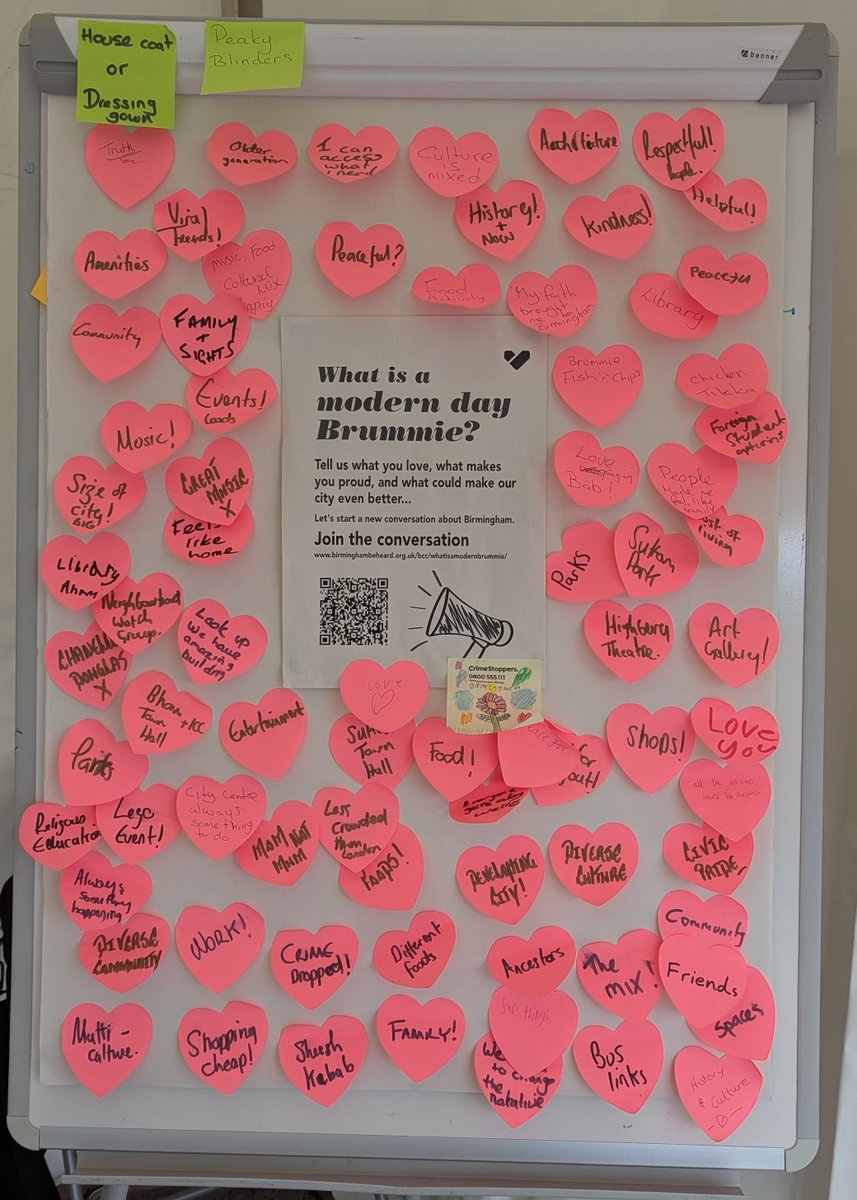 House coat
or
Dressing
gown
Peaky
Blinders
banner
Truth
Older
generation
I can
access
what
i need
Culture
is
mixed
Architicture
Respestfull!
People.
Helpfull!
Viral
trends!
History!
+
Now
Kindness!
Amenities
music, Food
Cultural
Mix
Happy
Peaceful?
Food
Activity
My faith
brought
me to
Birmingham
Library
Peaceful
Community
FAMILY
+
SIGHTS
Events!
Loads
Mosic!
Brummie
Fish'n'Chips
Chicken
Tikkka
Foreign
Student
Size of
city!
BIG!
GREAT
MUSIC
X
Feels
like
home
Love
Bab!
People
Made me
feel like
family
ost of
living
What is a
modern day
Brummie?
Tell us what you love, what makes
you proud, and what could make our
city even better...
Let's start a new conversation about Birmingham.
Join the conversation
www.birminghambeheard.org.uk/bcc/whatisamodernbrummie/
Library
Neighbourhood
Watch
Group.
Look up
We have
amazing
buildin
Parks
Sutton
Park
DOUGLAS
X
Bham
Town + ICC
Hall
Entertainment
Highbury
Theatre.
Art
Gallery!
CrimeStoppers.
0800 555 111
LOVE
Town
Hall
Food!
Shops!
Love
you
Parks
Religious
Education
Lego
Event!
City Centre
always
something
to do
MOM NOT
MUM
Less
Crowded
than
London
Always
something
happening
DEVELOPING
CITY!
DIVERSE
CULTURE
CIVIC
PRIDE,
DIVERSE
COMMUNITY
WORK!
CRIME
Dropped!
Different
foods
Ancestors
The
mix!
Community
Friends
Spaces
Mutti-
calture.
Shopping
cheap!
Sheesh
Kabab
FAMILY!
fun things
We
to change
the
natative
Bus
links
History
& Culture